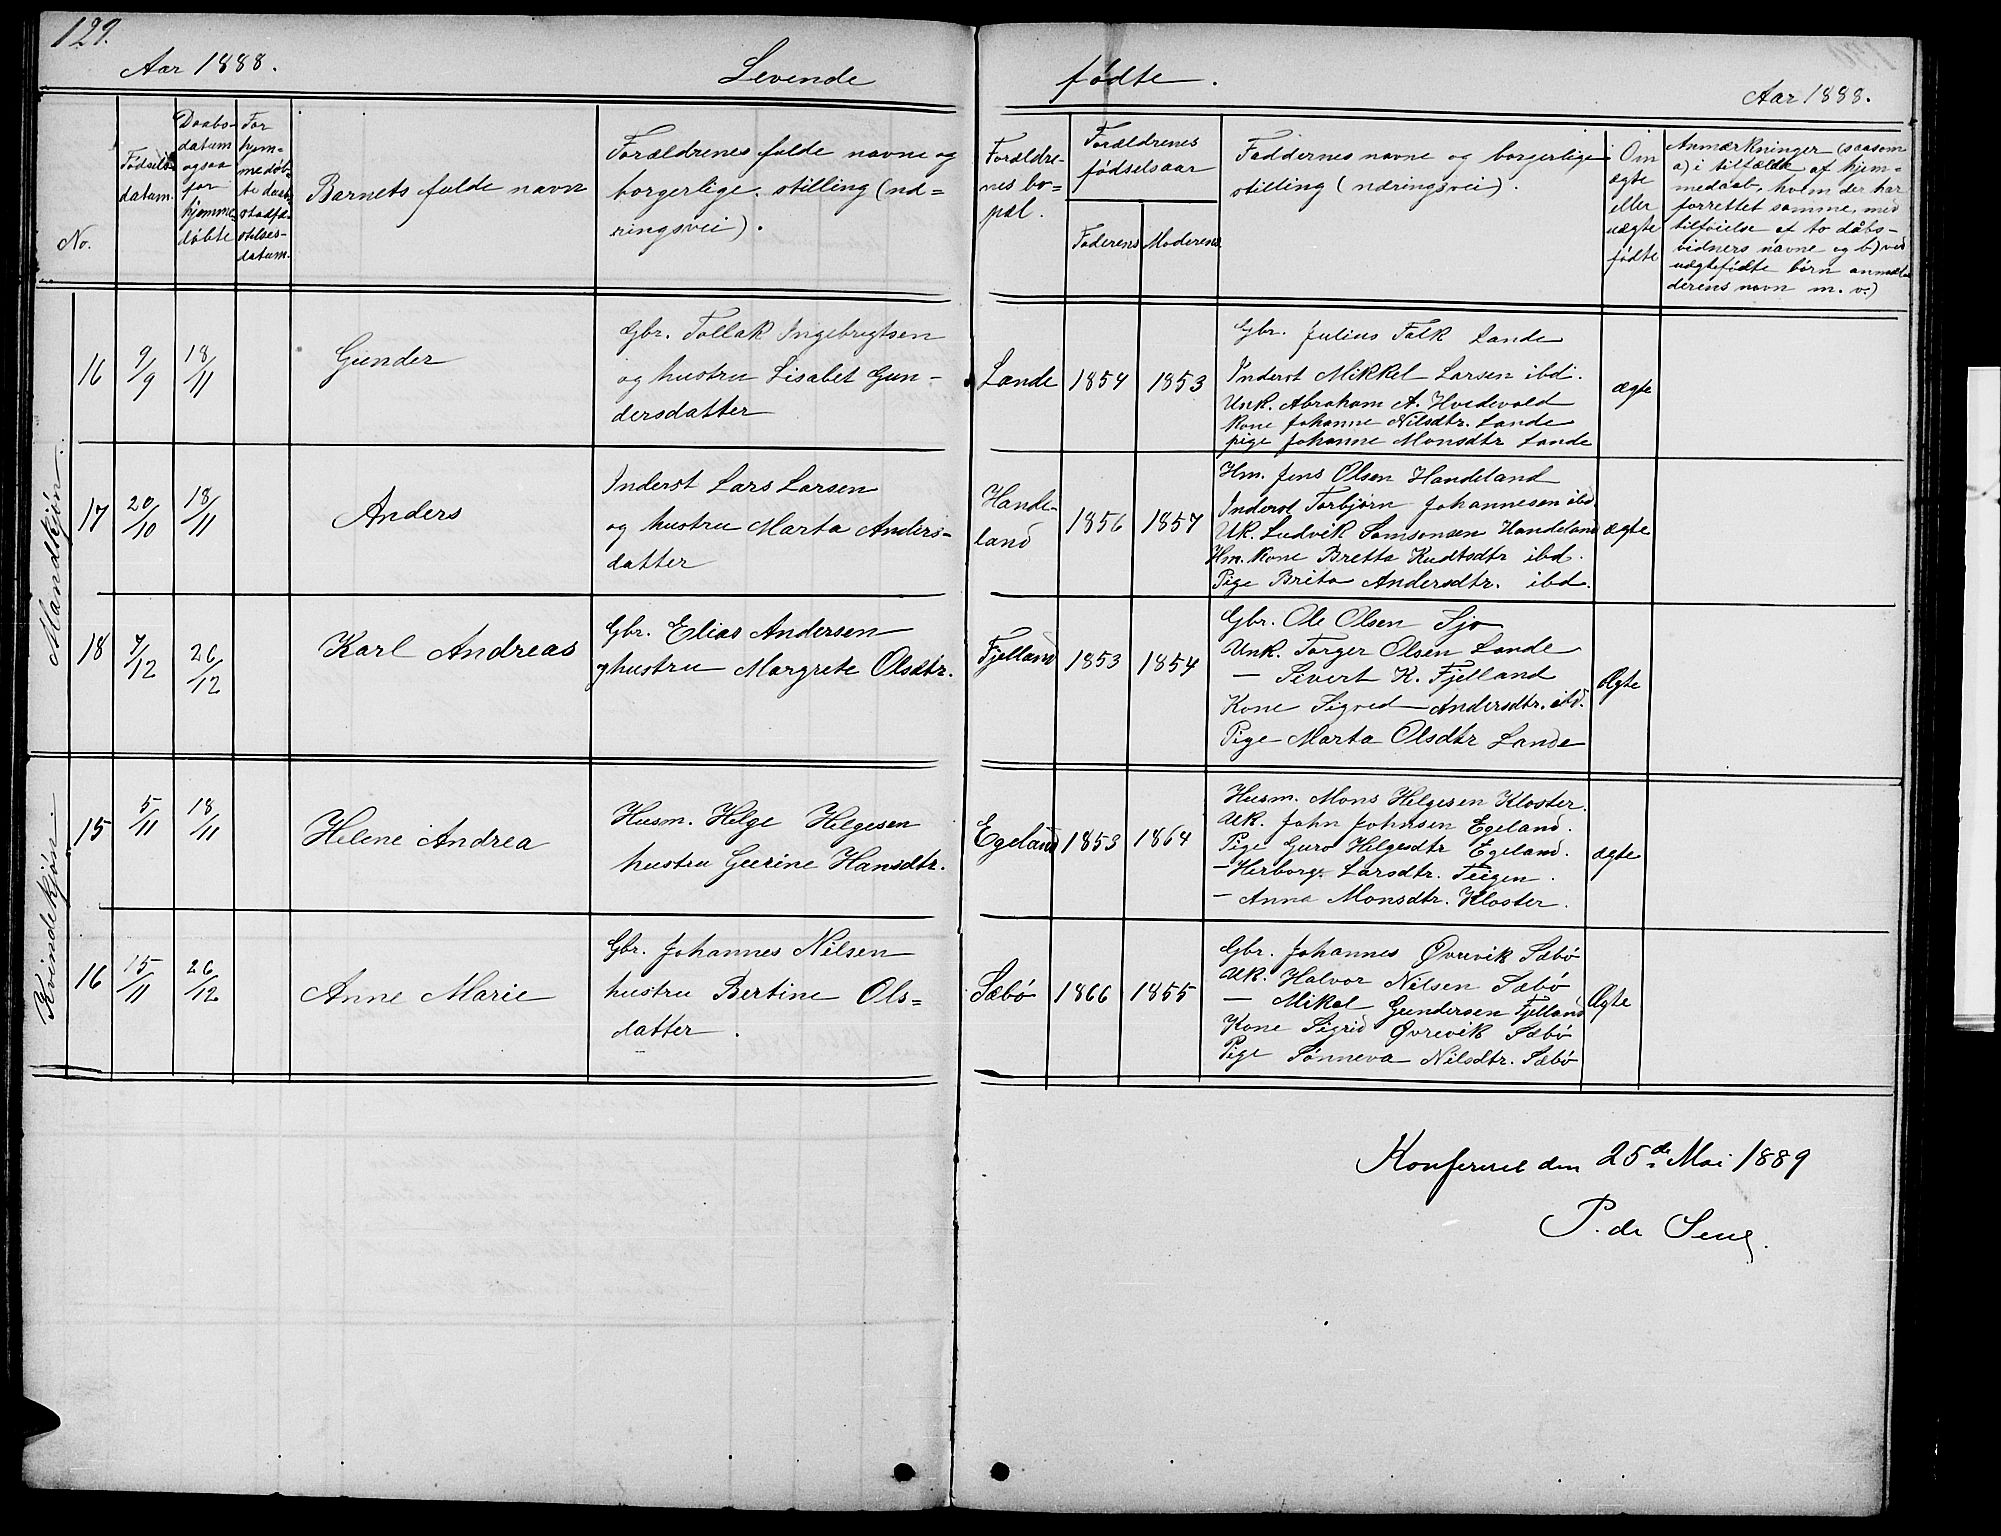 129.
Aar 1888.
Levende
fødte.
Aar 1888.
No.
Fødsels-
datum.
Daabs-
datum
ogsaa
for
hjemme-
døbte
For
hjem-
medøb-
te daabs
stadfæ-
stelses-
datum.
Barnets fulde navn
Forældrenes fulde navne og
borgerlige stilling (næ-
ringsvei).
Forældre-
nes bo-
pæl.
Forældrenes
fødselsaar
Faderens
Moderens
Faddernes navne og borgerlige
stilling (næringsvei).
Om
ægte
eller
uægte
fødte
Anmærkninger (saasom
a) i tilfælde af hjem-
medaab, hvem der har
forrettet samme, med
tilføielse af to dåbs-
vidners navne og b) ved
uægtefødte børn anmel-
derens navn m. v.)
Mandkjøn.
16
9/9
18/11
Gunder
Gbr. Tollak Ingebrigtsen
og hustru Lisabet Gun-
dersdatter
Lande
1854
1853
Gbr. Julius Falk Lande
Inderst Mikkel Larsen ibd.
Unk. Abraham A. Hvedevold
Kone Johanne Nilsdtr. Lande
pige Johanne Monsdtr Lande
ægte
17
20/10
18/11
Anders
Inderst Lars Larsen
og hustru Marta Anders-
datter
Hande-
land
1856
1857
Hm. Jens Olsen Handeland
Inderst Torbjørn Johannesen ibd
Uk. Ludvik Samsonsen Handeland
Hm. kone Bretta Kudtsdtr ibd.
Pige Brita Andersdtr. ibd.
ægte
18
7/12
26/12
Karl Andreas
Gbr. Elias Andersen
og hustru Margrete Olsdtr.
Fjelland
1853
1854
Gbr. Ole Olsen Sjo
Unk. Torger Olsen Lande
— Sivert K. Fjelland
Kone Sigred Andersdtr. ibd.
Pige Marta Olsdtr Lande
Ægte
Kvindekjøn.
15
5/11
18/11
Helene Andrea
Husm. Helge Helgesen
hustru Gurine Hansdtr.
Egeland
1853
1864
Husm. Mons Helgesen Kloster.
Uk. John Johnsen Egeland.
Pige Guro Helgesdtr Egeland.
— Herborg Larsdtr. Teigen.
— Anna Monsdtr. Kloster.
ægte
16
15/11
26/12
Anne Marie
Gbr. Johannes Nilsen
hustru Bertine Ols-
datter.
Sæbø
1866
1855
Gbr. Johannes Øvrevik Sæbø
Uk. Halvor Nilsen Sæbø
— Mikal Gundersen Fjelland
Kone Sigrid Øvrevik Sæbø
Pige Sønneva Nilsdtr. Sæbø
Ægte
Konfereret den 25de Mai 1889
P. de Seue.